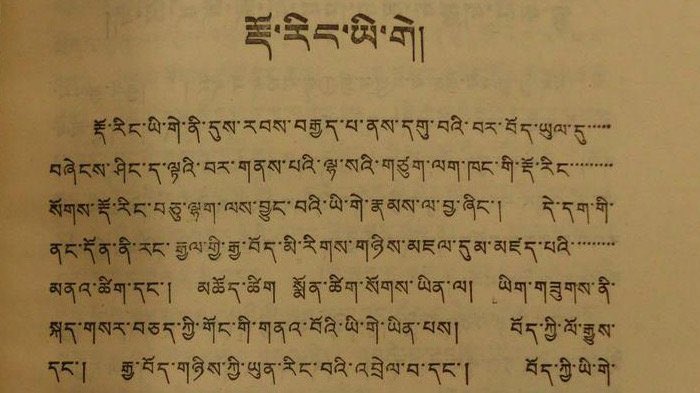 རྡོ་རིང་ཡི་གེ།
རྡོ་རིང་ཡི་གེ་ནི་དུས་རབས་བརྒྱད་པ་ནས་དགུ་བའི་བར་བོད་ཡུལ་དུ་་་་་
བཞེངས་ཤིང་ད་ལྟའི་བར་གནས་པའི་ལྷ་སའི་གཙུག་ལག་ཁང་གི་རྡོ་རིང་་་་་་་
སོགས་རྡོ་རིང་བཅུ་ལྷག་ལས་བྱུང་བའི་ཡི་གེ་རྣམས་ལ་བྱ་ཞིང་། དེ་དག་གི་
ནང་དོན་ནི་རང་རྒྱལ་གྱི་རྒྱ་བོད་མི་རིགས་གཉིས་མཇལ་དུམ་མཛད་པའི་་་་་་་་
མནའ་ཚིག་དང་། མཆོད་ཚིག སྨོན་ཚིག་སོགས་ཡིན་ལ། ཡིག་གཟུགས་ནི་
སྐད་གསར་བཅད་ཀྱི་གོང་གི་གནའ་བོའི་ཡི་གེ་ཡིན་པས། བོད་ཀྱི་ལོ་རྒྱུས་
དང་། རྒྱ་བོད་གཉིས་ཀྱི་ཡུན་རིང་བའི་འབྲེལ་བ་དང་། བོད་ཀྱི་ཡི་གེ་